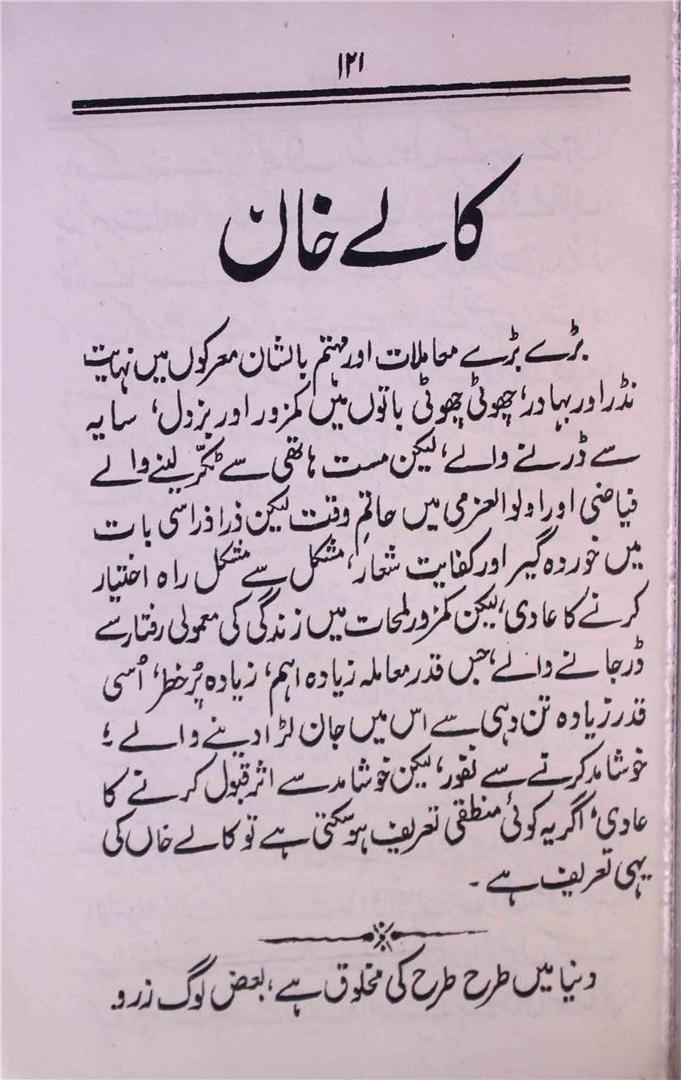 ۱۲۱
کالے خان
بڑے بڑے معاملات اور مہتم بالشان معرکوں میں نہایت
نڈر اور بہادر، چھوٹی چھوٹی باتوں میں کمزور اور بزدل، سایہ
سے ڈرنے والے، لیکن مست ہاتھی سے ٹکّر لینے والے
فیاضی اور اولوالعزمی میں حاتمِ وقت لیکن ذرا ذراسی بات
میں خوردہ گیر اور کفایت شعار، مشکل سے مشکل راہ اختیار
کرنے کا عادی، لیکن کمزور لمحات میں زندگی کی معمولی رفتار سے
ڈر جانے والے، جس قدر معاملہ زیادہ اہم، زیادہ پُرخطر، اُسی
قدر زیادہ تن دہی سے اس میں جان لڑا دینے والے ؛
خوشامد کرنے سے نفور، لیکن خوشامد سے اثر قبول کرنے کا
عادی، اگر یہ کوئی منطقی تعریف ہوسکتی ہے تو کالے خاں کی
یہی تعریف ہے ۔
دنیا میں طرح طرح کی مخلوق ہے، بعض لوگ زرو.